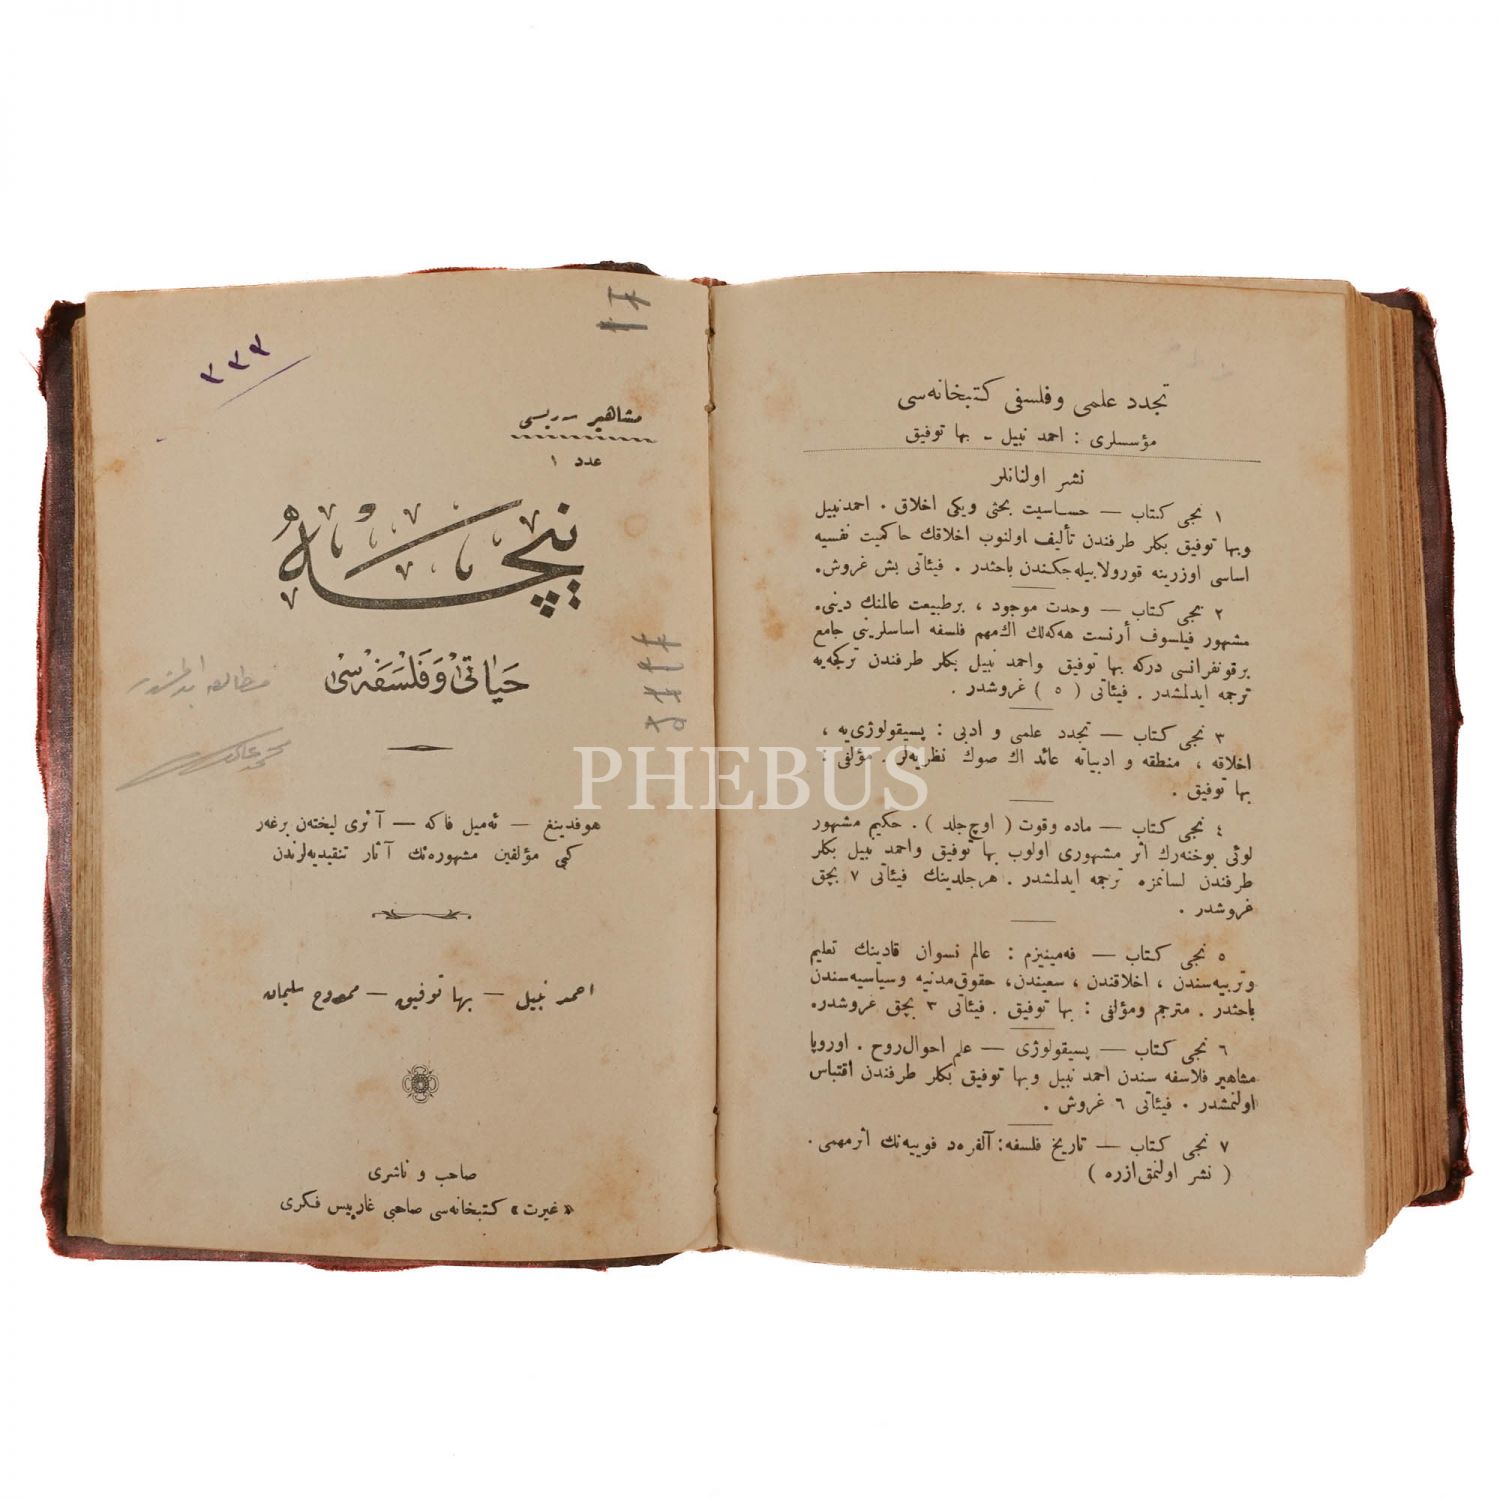 تجدد علمی و فلسفی کتبخانه‌سی
مؤسسلری : احمد نبیل - بها توفیق
نشر اولنانلر
١ نجی کتاب — حساسیت بحثی ویکی اخلاق . احمدنبیل
وبها توفیق بکلر طرفندن تألیف اولنوب اخلاقك حاکمیت نفسیه
اساسی اوزرینه قورولابیله‌جکندن باحثدر . فیئاتی بش غروش.
٢ نجی کتاب — وحدت موجود ، برطبیعت عالمنك دینی.
مشهور فیلسوف أرنست هه‌که‌لك اك‌مهم فلسفه اساسلرینی جامع
برقونفرانسی درکه بها توفیق واحمد نبیل بکلر طرفندن ترکجه‌یه
ترجمه ایدلمشدر . فیئاتی ( ٥ ) غروشدر .
٣ نجی کتاب — تجدد علمی و ادبی : پسیقولوژی‌یه ،
اخلاقه ، منطقه و ادبیاته عائد اك صوك نظریه‌لر. مؤلفی :
بها توفیق .
٤ نجی کتاب — ماده وقوت ( اوچ جلد ) . حکیم مشهور
لوئی بوخنه‌رك اثر مشهوری اولوب بها توفیق واحمد نبیل بکلر
طرفندن لسانمزه ترجمه ایدلمشدر . هرجلدینك فیئاتی ٧ بچق
غروشدر .
٥ نجی کتاب — فه‌مینیزم : عالم نسوان قادینك تعلیم
وتربیه‌سندن ، اخلاقندن ، سعیندن، حقوق‌مدنیه وسیاسیه‌سندن
باحثدر . مترجم ومؤلفی : بها توفیق . فیئاتی ٣ بچق غروشدر.
٦ نجی کتاب — پسیقولوژی — علم احوال‌روح . اوروپا
مشاهیر فلاسفه سندن احمد نبیل وبها توفیق بکلر طرفندن اقتباس
اولنمشدر . فیئاتی ٦ غروش .
٧ نجی کتاب — تاریخ فلسفه: آلفره‌د فوییه‌نك اثرمهمی .
( نشر اولنمق‌ازره )
٣٣٣
مشاهیر سریسی
عدد ١
نیچه
حیاتی و فلسفه‌سی
مطالعه ایدلمشدر
هوفدینغ — ئه‌میل فاکه — آنری لیخته‌ن برغه‌ر
کبی مؤلفین مشهوره‌نك آثار تنقیدیه‌لرندن
احمد نبیل — بها توفیق — ممدوح سلیمان
صاحب و ناشری
«غیرت» کتبخانه‌سی صاحبی غارپیس فکری
PHEBUS